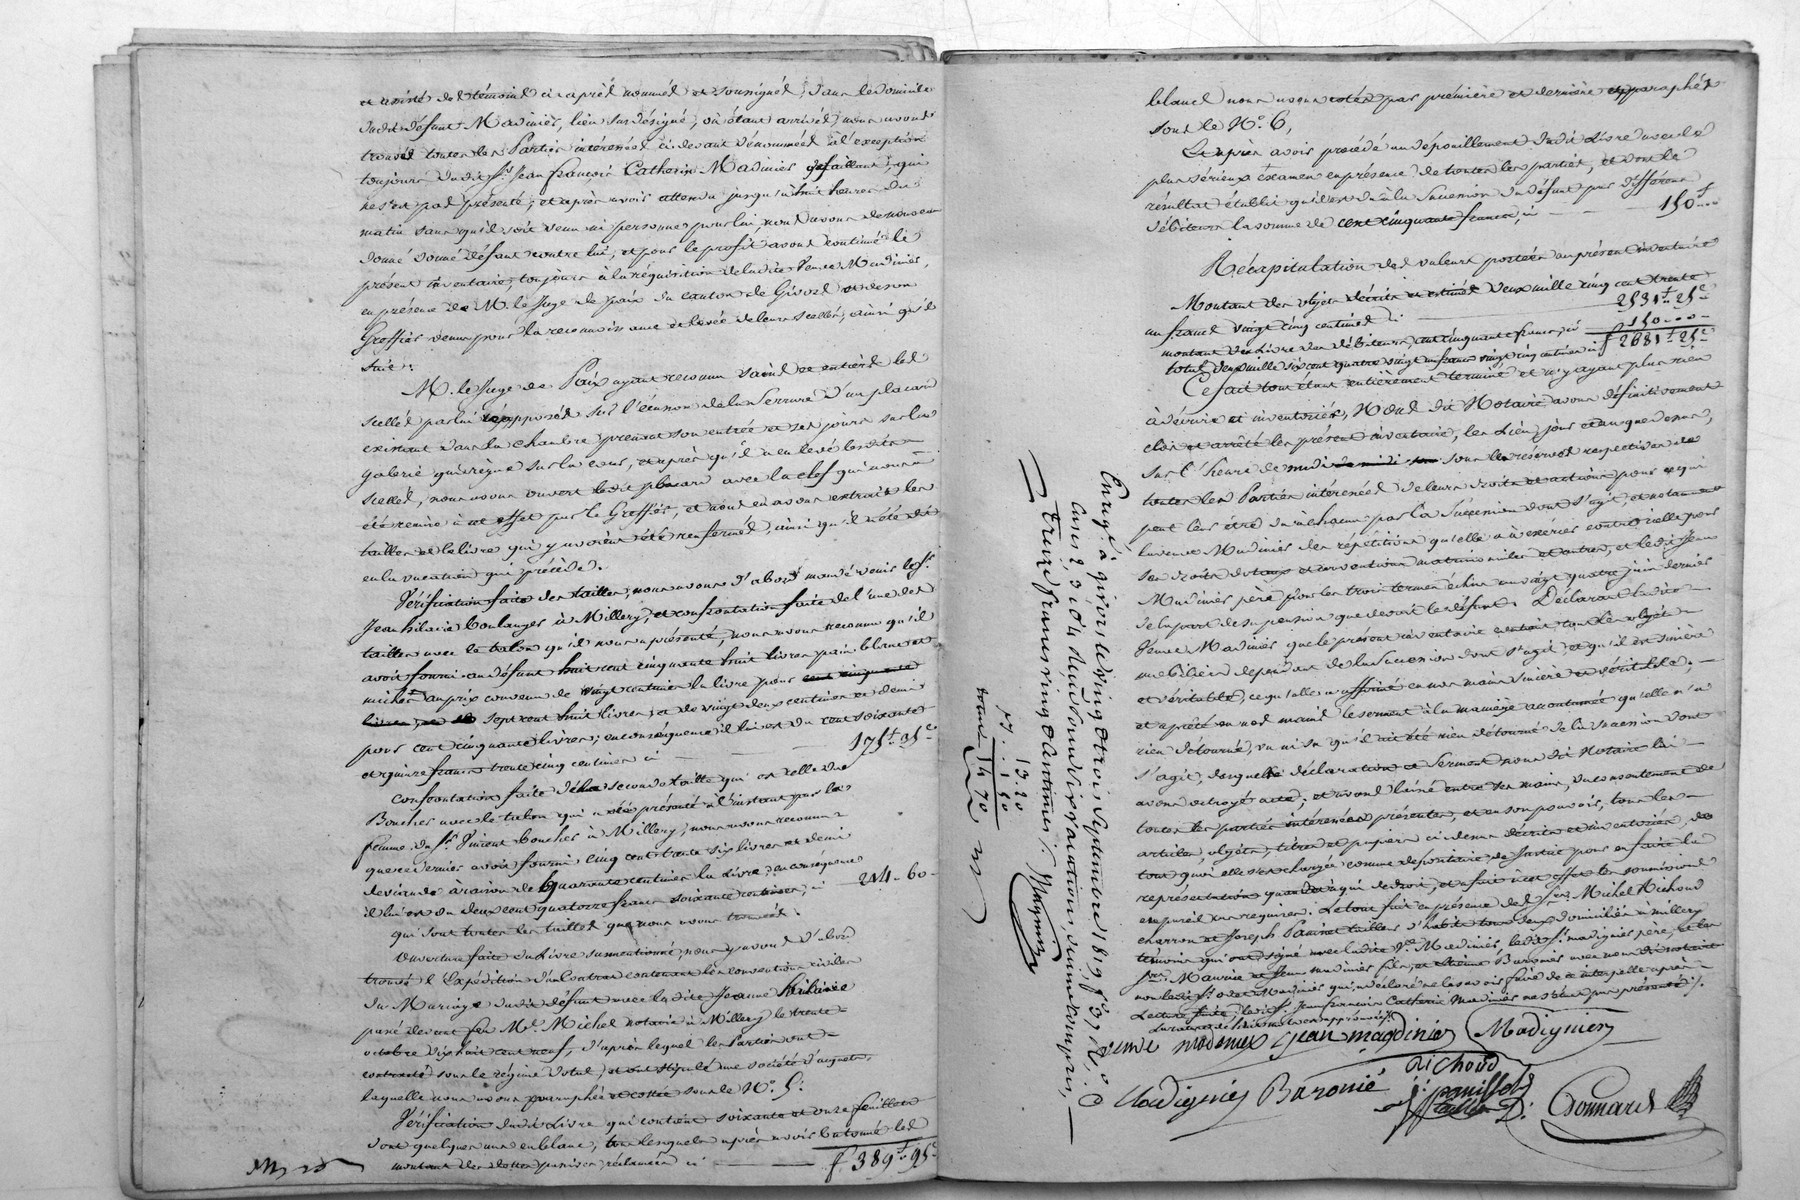 et assisté des témoins ci après nommés et soussignés, dans le domicile
dudit défunt Madinier, lieu susdésigné, où étant arrivés, nous avons
trouvé toutes les Parties intéressées ci devant dénommées à l'exception
toujours dudit Sr. Jean françois Catherin Madinier défaillant, qui
ne s'est pas présenté; et après avoir attendu jusqu'à huit heures du
matin sans qu'il soit venu ni personne pour lui, nous avons de nouveau
donné défaut contre lui, et pour le profit avons continué le
présent inventaire, toujours à la réquisition de ladite Veuve Madinier,
en présence de M. le Juge de paix du canton de Givors et de son
Greffier venus pour la reconnaissance et levée de leurs scellés, ainsi qu'il
suit:
M. le Juge de Paix ayant reconnu sains et entiers les
scellés par lui réapposés sur l'écusson de la serrure d'un placard
existant dans la chambre prenant son entrée et ses jours sur la
galerie qui règne sur la cour, et après qu'il a eu levé lesdits
scellés, nous avons ouvert ledit placard avec la clef qui nous a
été remise à cet effet par le Greffier, et nous en avons extrait les
tailles et le livre qui y avoient été renfermés, ainsi qu'il a été dit
en la vacation qui précède.
Vérification faite des tailles, nous avons d'abord mandé venir le Sr.
Jean hilaire boulanger à Millery, et confrontation faite de l'une des
tailles avec le talon qu'il nous a présenté, nous avons reconnu qu'il
avoit fourni au défunt huit cent cinquante huit livres pain blanc et
miche au prix convenu de vingt centimes la livre pour
sept cent huit livres, et de vingt deux centimes et demi
pour cent cinquante livres; en conséquence il lui est du cent soixante
et quinze francs trente cinq centimes ci — 175f. 35c
Confrontation faite de la seconde taille qui est celle du
Boucher avec le talon qui a été présenté à l'instant par la
femme du Sr. Vincent boucher à Millery, nous avons reconnu
que ce dernier avoit fourni cinq cent trente six livres et demi
de viande à raison de quarante centimes la livre; en conséquence
il lui est du deux cent quatorze francs soixante centimes, ci — 214 - 60 -
qui sont toutes les tailles que nous avons trouvées.
Ouverture faite du Livre susmentionné, nous y avons d'abord
trouvé l'Expédition d'un Contrat contenant les conventions civiles
du Mariage dudit défunt avec ladite Jeanne
passé devant feu Me. Michel notaire à Millery le trente
octobre dix huit cent neuf, d'après lequel les Parties ont
contracté sous le régime dotal, et ont stipulé une société d'acquets,
laquelle nous avons paraphée et cottée sous le No. 5.
Vérification dudit Livre qui contient soixante et onze feuillets
dont quelques uns en blanc, lesquels après avoir batonné les
montant des dettes passives réclamées ci — f. 389. 95c
blancs nous avons cotés par première et dernière et paraphés
sous le No. 6,
Et après avoir procédé au dépouillement dudit Livre avec le
plus sérieux examen en présence de toutes les parties, et dont le
résultat établit qu'il est dû à la succession du défunt par différens
débiteurs la somme de cent cinquante francs, ci — 150f....
Récapitulation des valeurs portées au présent inventaire
Montant des objets décrits et estimés deux mille cinq cent trente
un francs vingt cinq centimes ci — 2531f. 25c
montant du Livre des débiteurs, cent cinquante francs, ci 150...
total deux mille six cent quatre vingt un francs vingt cinq centimes ci f 2681f. 25c
Ce fait tout étant entièrement terminé et n'y ayant plus rien
à décrire et inventorier, Nous dit Notaire avons définitivement
clos et arrêté les présent inventaire, les Lieu, jour et an que dessus,
sur l'heure de midi sous les réserves respectives de
toutes les Parties intéressées de leurs droits et actions pour ce qui
peut leur être dû à chacune par la Succession dont s'agit, et notamment
la veuve Madinier des répétitions qu'elle a à exercer contre icelle pour
ses droits dotaux et conventions matrimoniales et autres, et ledit Jean
Madinier père pour les trois termes échus au vingt quatre juin dernier
de la part de sa pension que devoit le défunt. Déclarant ladite
Veuve Madinier que le présent inventaire contient tous les objets
mobiliers dépendant de la Succession dont s'agit et qu'il est sincère
et véritable, ce qu'elle a affirmé en nos mains sincère et véritable;
et a prêté en nos mains le serment à la manière accoutumée qu'elle n'a
rien détourné, vu ni su qu'il ait été rien détourné de la succession dont
s'agit, desquelles déclaration et Serment nous dit Notaire lui
avons octroyé acte; et avons laissé entre ses mains, du consentement de
toutes les parties intéressées présentes, et en son pouvoir, tous les
articles, objets, titres et papiers ci dessus décrits et inventoriés, de
tout quoi elle s'est chargée comme dépositaire de Justice pour en faire la
représentation quand et à qui de droit, et a fait à cet effet les soumissions
en pareil cas requises. Le tout fait en présence des Srs. Michel Richoud
charron et Joseph Panisset tailleur d'habits tous deux domiciliés à millery
témoins qui ont signé avec ladite Ve. Madinier, ledit Sr. madignier père, et les
Srs. Maurice et Jean madinier fils, et Etienne Baronier avec nous dit notaire
Lecture faite, ledit Sr. Jean francois Catherin Madinier ne s'étant pas présenté./.
veuve madinier Jean magdinier Madignier
Richoud
Madignier Baronié J. panisset tailleur Donnard
Enregé. à givors, le vingt et trois Septembre 1819 f.o 37 R.o C.
Cases 2, 3 et 4, du
treize francs vingt centimes./.
13. 20
1. 50
14 70